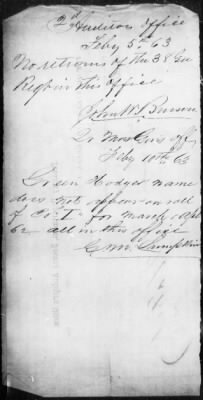 2d Auditors Office
Feby 5th 63
No returns of the 38 Ga
Regt in this office
John W
Qr Mas Gens off
Feby 10th 63
Green Hodges name
does not appear on roll
of Co "I" for March & Apl
62 all in this office